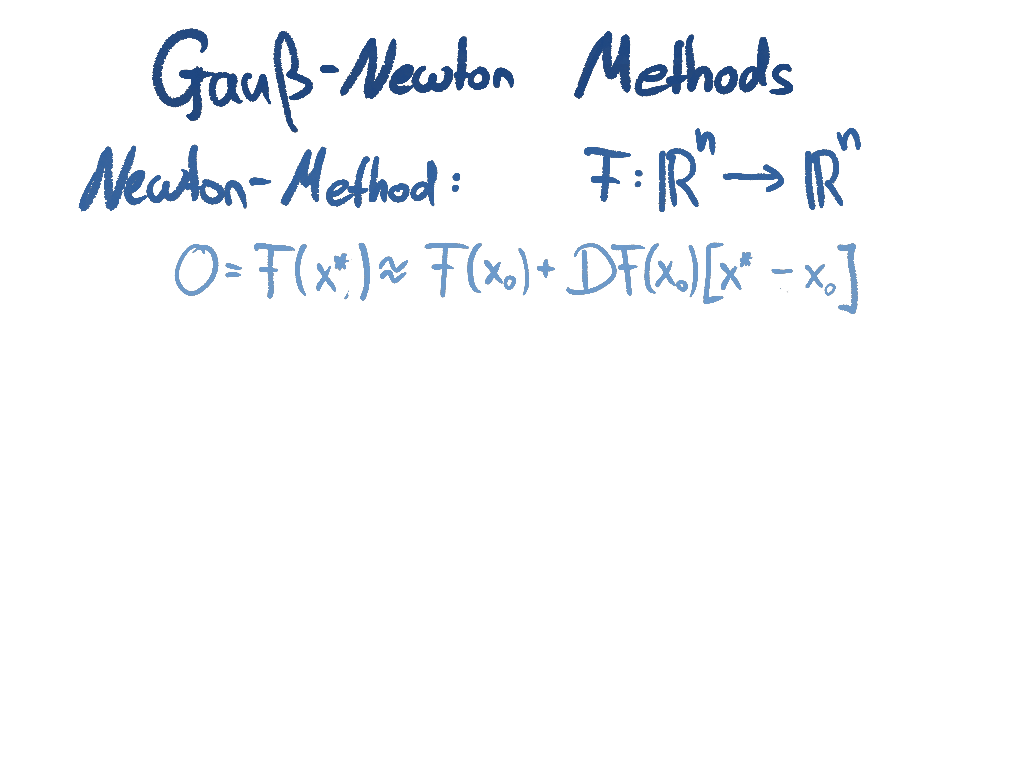 Gauß-Newton Methods
Newton-Method: F: ℝⁿ → ℝⁿ
0 = F(x*) ≈ F(x₀) + DF(x₀)[x* - x₀]